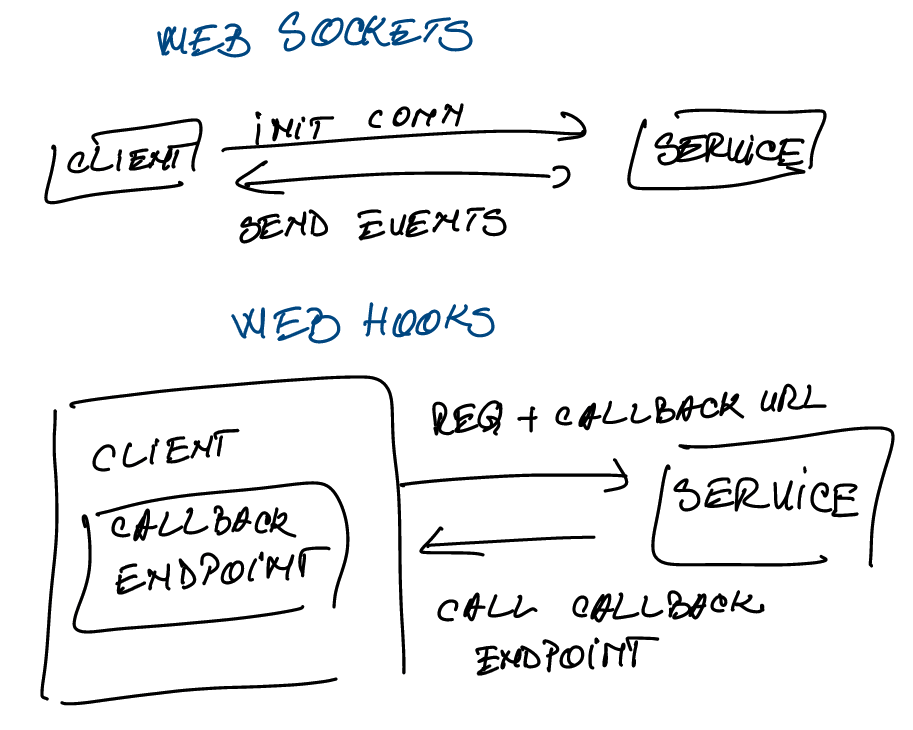 WEB SOCKETS
CLIENT
INIT CONN
SERVICE
SEND EVENTS
WEB HOOKS
CLIENT
CALLBACK
ENDPOINT
REQ + CALLBACK URL
SERVICE
CALL CALLBACK
ENDPOINT